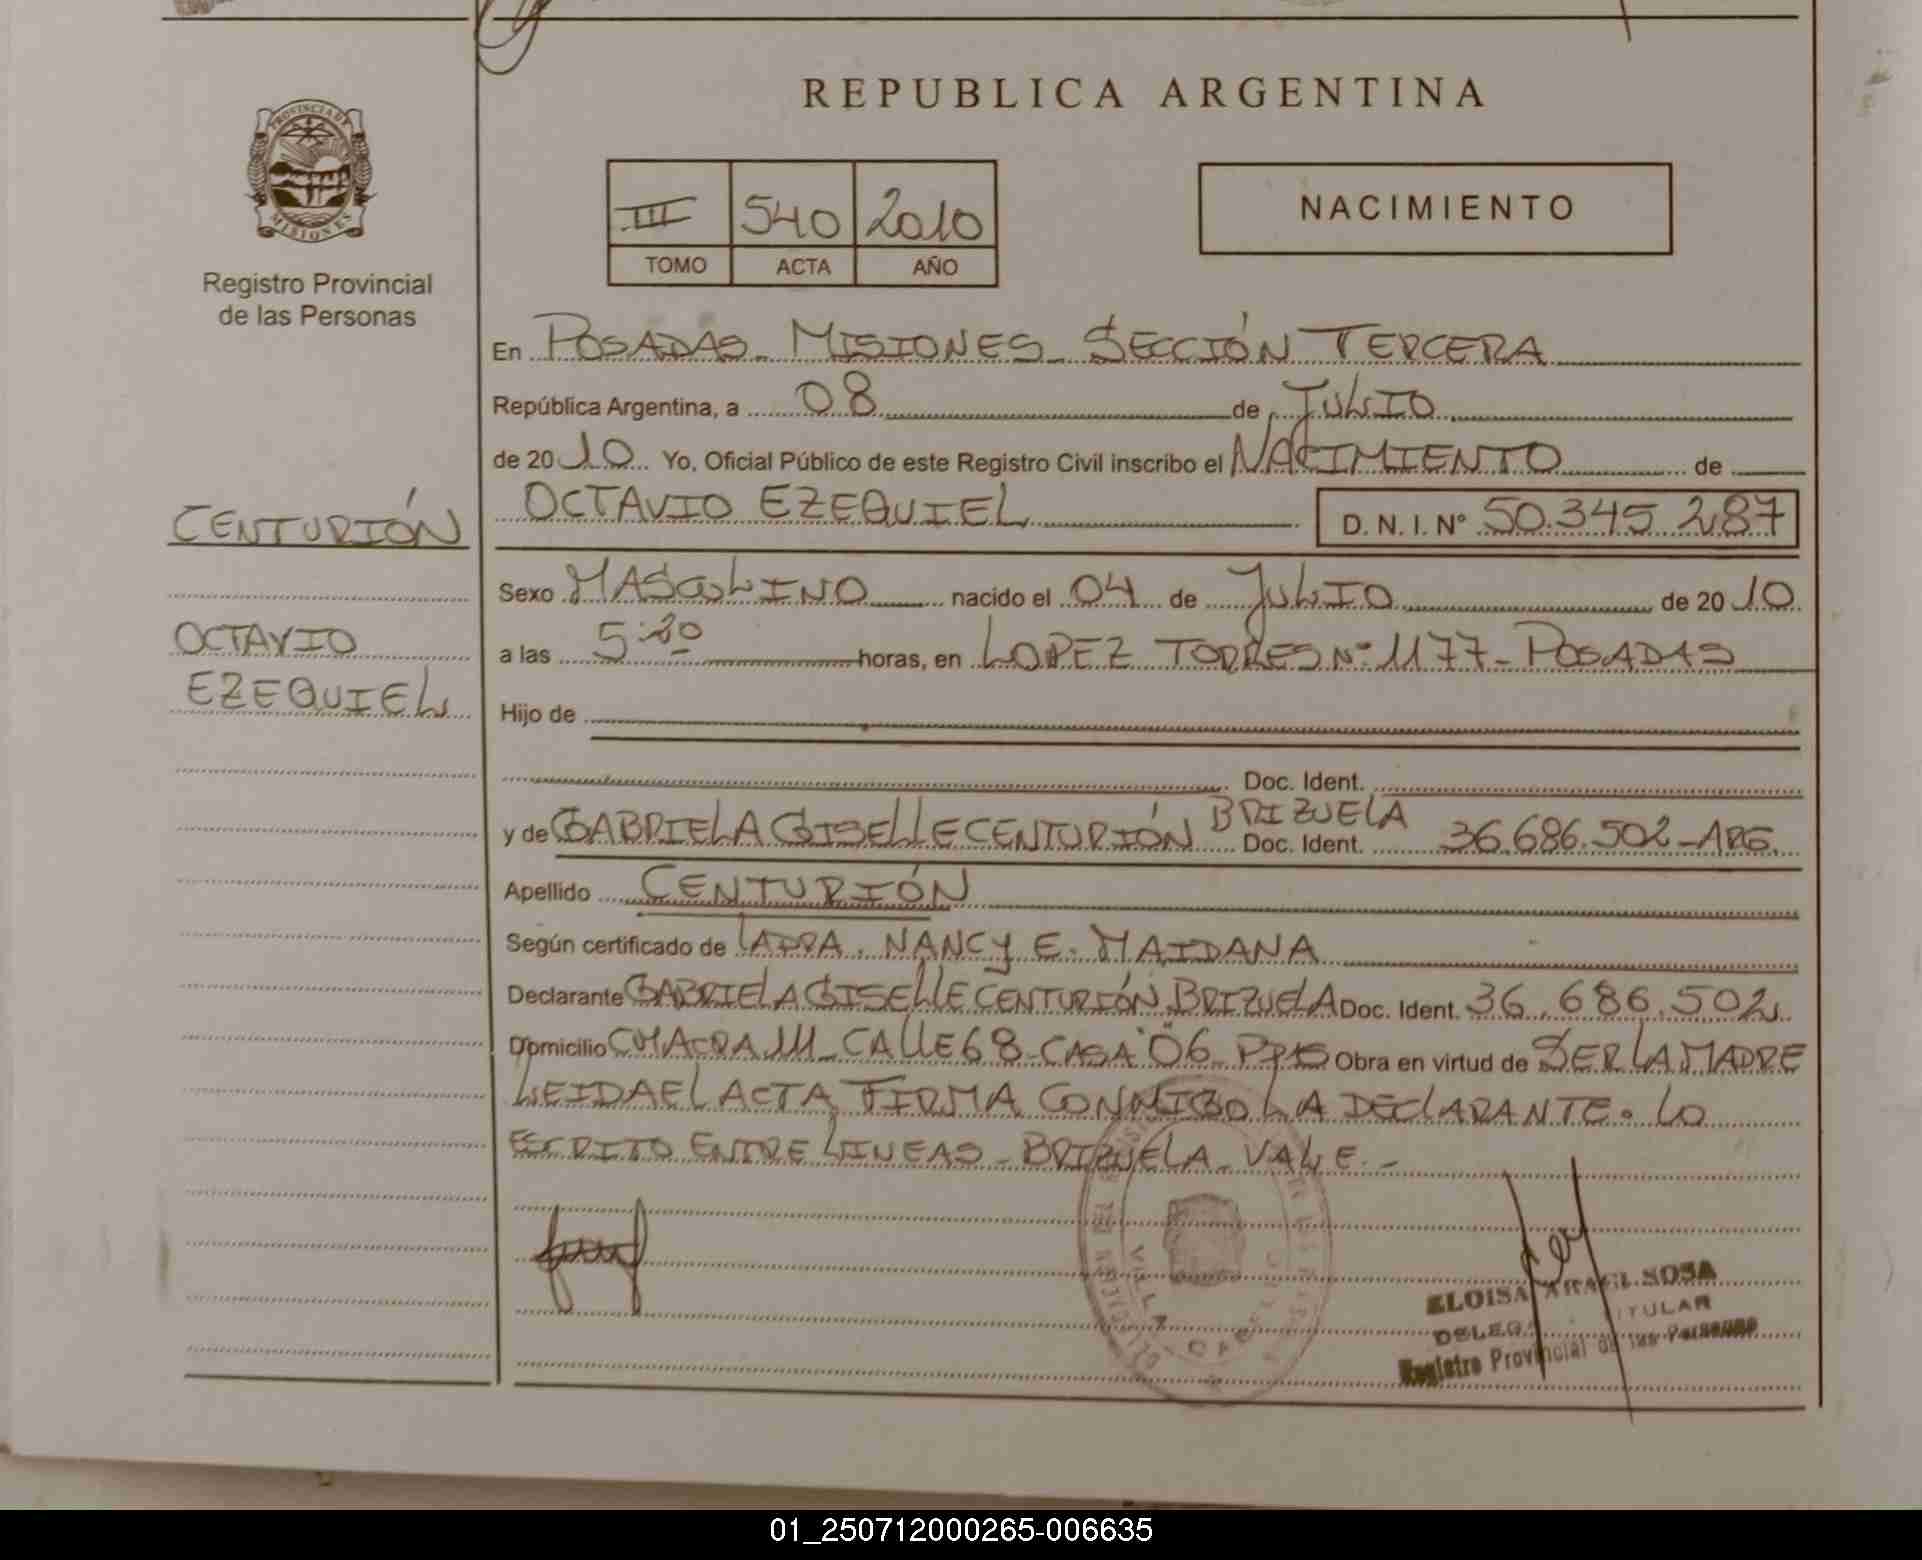 REPUBLICA ARGENTINA
PROVINCIA DE
MISIONES
Registro Provincial
de las Personas
III 540 2010
TOMO ACTA AÑO
NACIMIENTO
En POSADAS - MISIONES - SECCIÓN TERCERA
República Argentina, a 08 de JULIO
de 2010 Yo, Oficial Público de este Registro Civil inscribo el NACIMIENTO de
CENTURIÓN
OCTAVIO EZEQUIEL D. N. I. N° 50.345.287
Sexo MASCULINO nacido el 04 de JULIO de 2010
OCTAVIO
EZEQUIEL
a las 5:20 horas, en LOPEZ TORRES N° 1177 - POSADAS
Hijo de
Doc. Ident.
BRIZUELA
y de GABRIELA GISELLE CENTURIÓN Doc. Ident. 36.686.502 - ARG.
Apellido CENTURIÓN
Según certificado de NANCY E. MAIDANA
Declarante GABRIELA GISELLE CENTURIÓN BRIZUELA Doc. Ident. 36.686.502
Domicilio CHACRA 111 - CALLE 68 - CASA 06 - Obra en virtud de SER LA MADRE
LEIDA EL ACTA FIRMA CONMIGO LA DECLARANTE. LO
ESCRITO ENTRE LINEAS - BRIZUELA - VALE. -
VILLA
ELOISA SOSA
TITULAR
Registro Provincial de las Personas
01_250712000265-006635